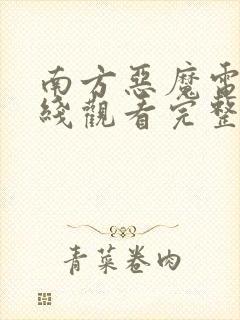 南方惡魔雷
綫觀看完整
青菜卷肉